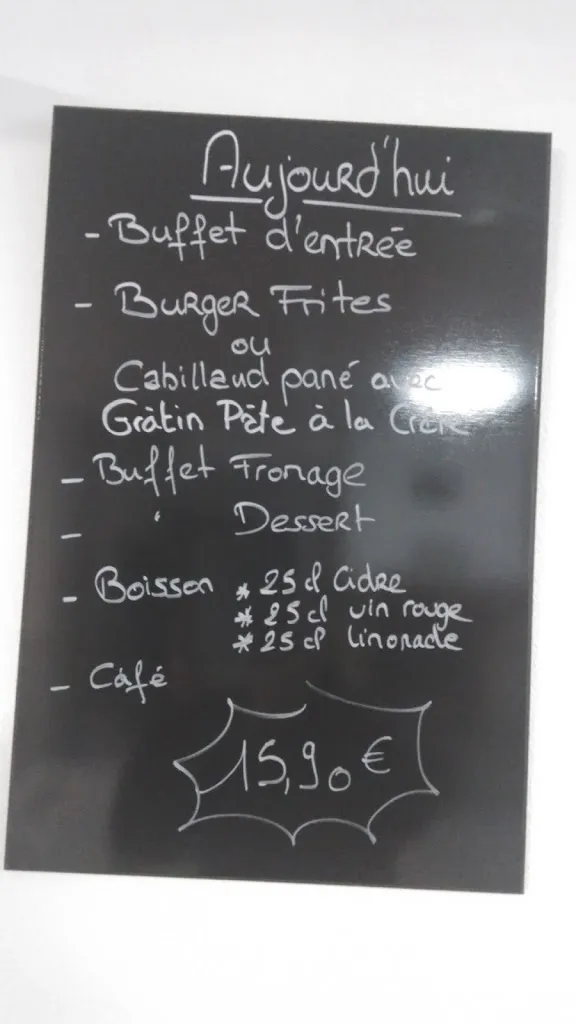 Aujourd'hui
- Buffet d'entrée
- Burger Frites
ou
Cabillaud pané avec
Gràtin Pàte à la
- Buffet Fromage
- " Dessert
- Boisson * 25 cl Cidre
* 25 cl vin rouge
* 25 cl limonade
- Café
15,90 €